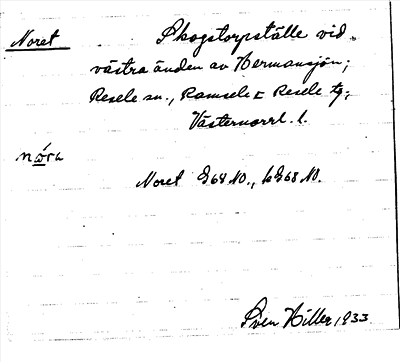 Noret Skogstorpställe vid
västra änden av Hermansjön;
Resele sn., Ramsele o Resele tg.;
Västernorrl. l.
nọ́ra
Noret G 68 NO., kG 68 NO.
Sven Hiller, 1933.